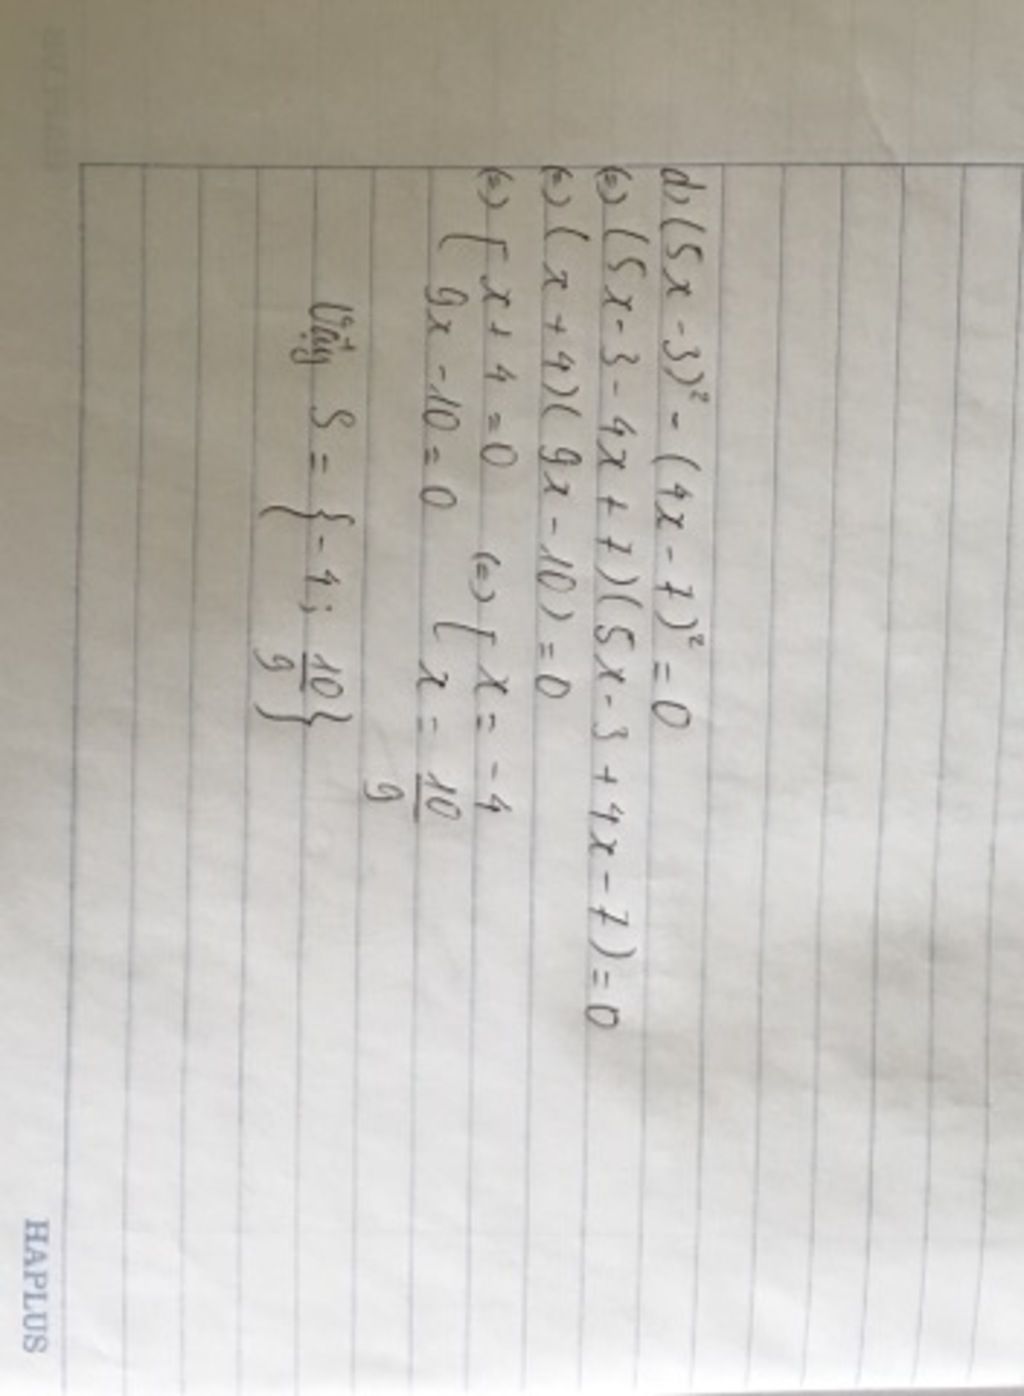 d) (5x - 3)² - (4x - 7)² = 0
(=) (5x - 3 - 4x + 7)(5x - 3 + 4x - 7) = 0
(=) (x + 4)(9x - 10) = 0
(=) [ x + 4 = 0 (=) [ x = -4
9x - 10 = 0 x = 10/9
Vậy S = {-4; 10/9}
HAPLUS